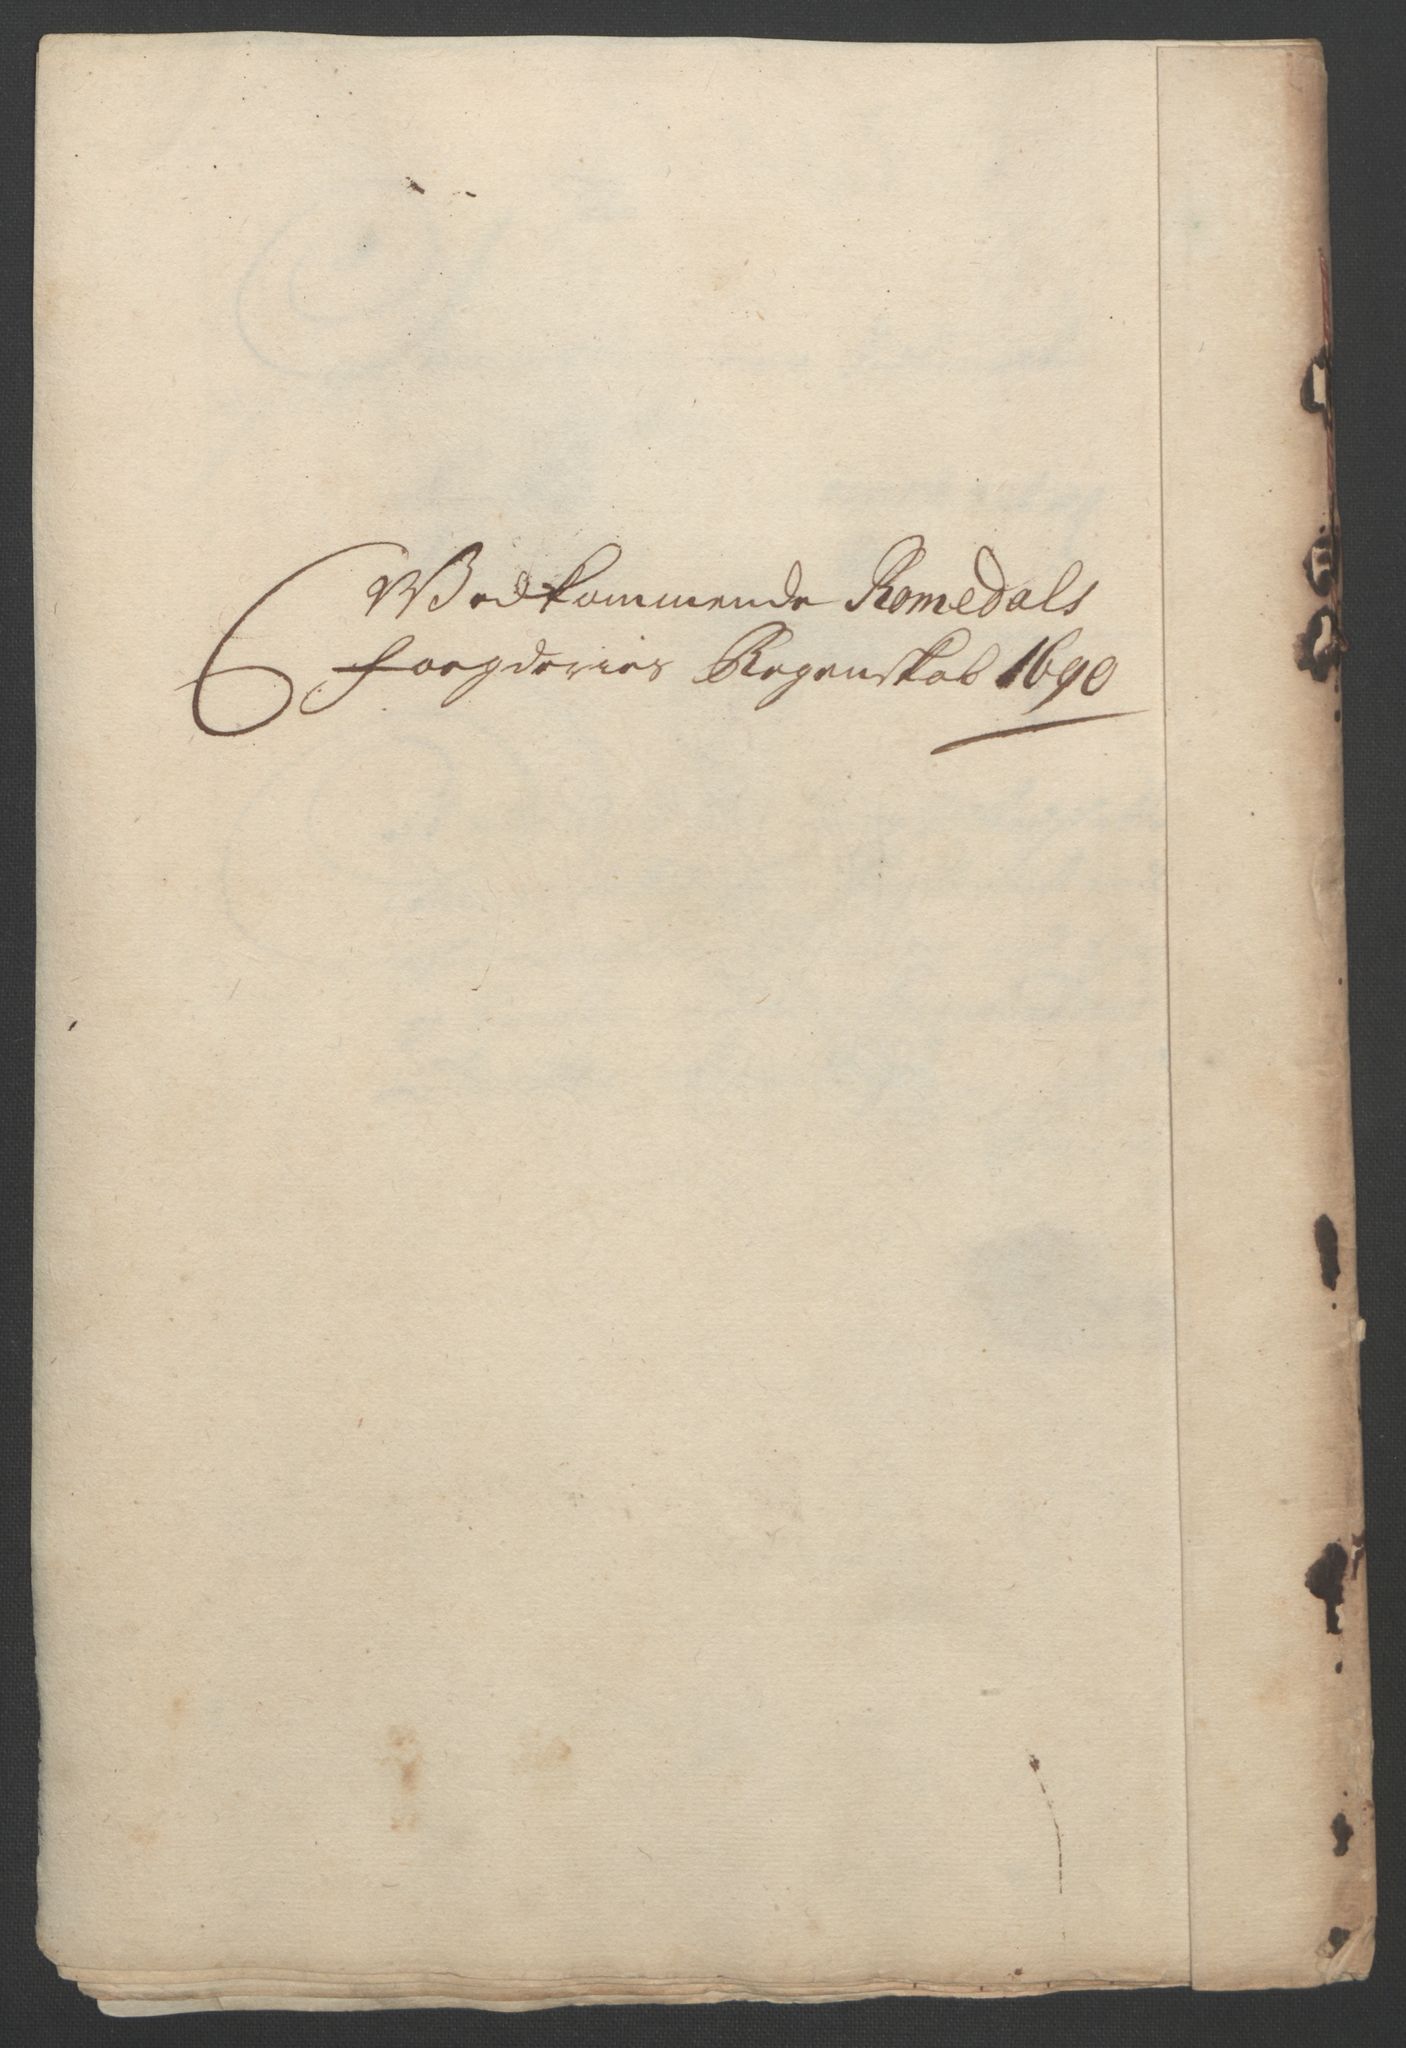 Wedkommende Romedals
foegderies Regenskab 1690